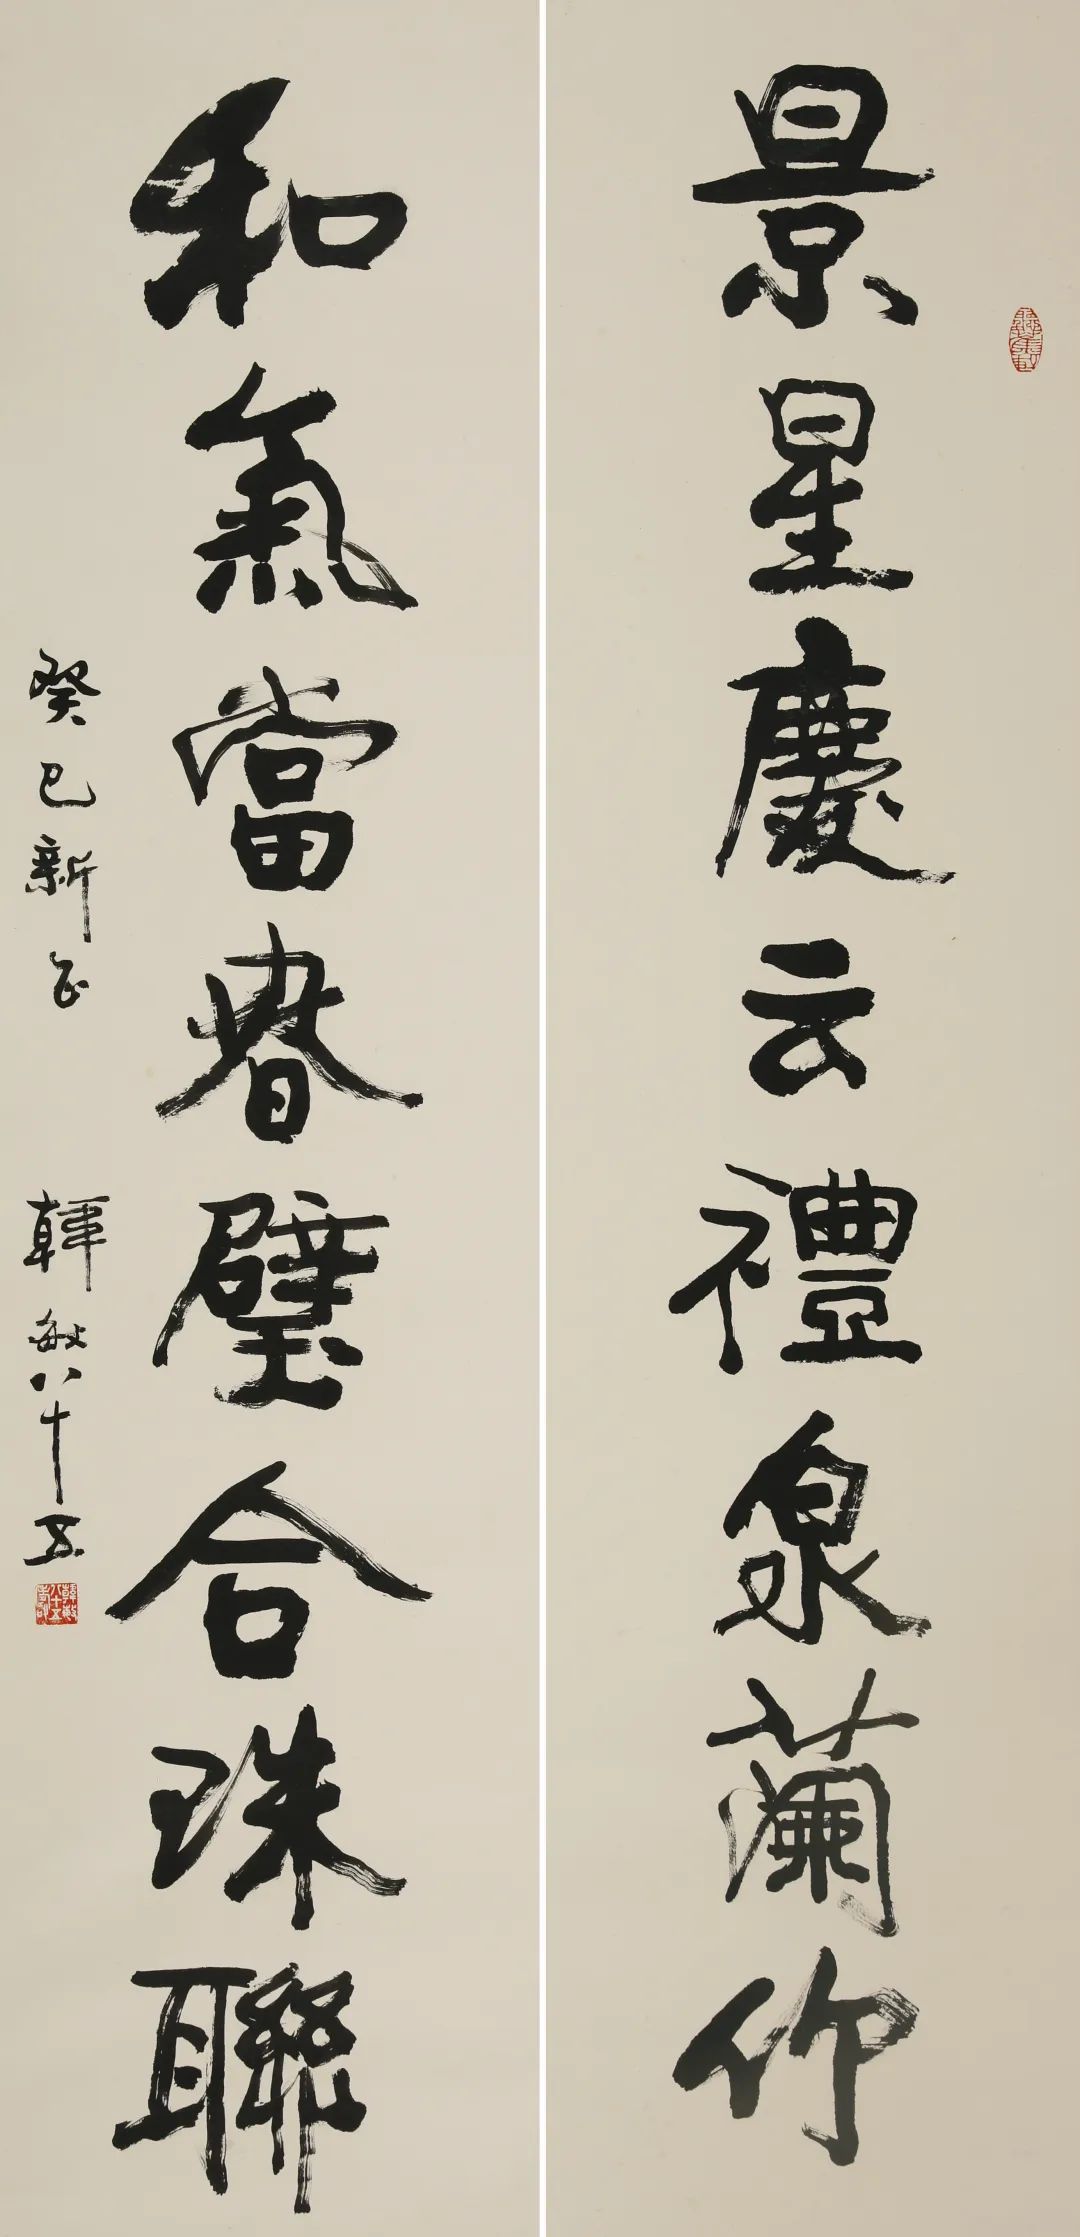 景星慶云禮泉蘭竹
和氣當春璧合珠聯
癸巳新正 韓敏八十五